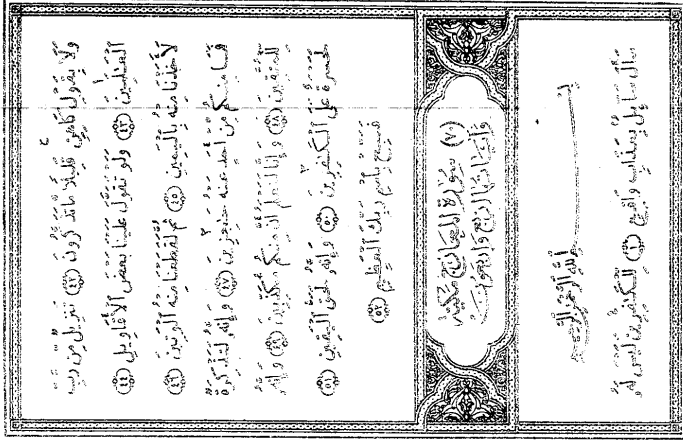 وَلَا بِقَوْلِ كَاهِنٍ قَلِيلًا مَّا تَذَكَّرُونَ ﴿٤٢﴾ تَنزِيلٌ مِّن رَّبِّ
ٱلْعَٰلَمِينَ ﴿٤٣﴾ وَلَوْ تَقَوَّلَ عَلَيْنَا بَعْضَ ٱلْأَقَاوِيلِ ﴿٤٤﴾
لَأَخَذْنَا مِنْهُ بِٱلْيَمِينِ ﴿٤٥﴾ ثُمَّ لَقَطَعْنَا مِنْهُ ٱلْوَتِينَ ﴿٤٦﴾
فَمَا مِنكُم مِّنْ أَحَدٍ عَنْهُ حَٰجِزِينَ ﴿٤٧﴾ وَإِنَّهُۥ لَتَذْكِرَةٌ
لِّلْمُتَّقِينَ ﴿٤٨﴾ وَإِنَّا لَنَعْلَمُ أَنَّ مِنكُم مُّكَذِّبِينَ ﴿٤٩﴾ وَإِنَّهُۥ
لَحَسْرَةٌ عَلَى ٱلْكَٰفِرِينَ ﴿٥٠﴾ وَإِنَّهُۥ لَحَقُّ ٱلْيَقِينِ ﴿٥١﴾
فَسَبِّحْ بِٱسْمِ رَبِّكَ ٱلْعَظِيمِ ﴿٥٢﴾
(٧٠) سُورَةُ المَعَارِجِ مَكِّيَّةٌ
وَآيَاتُهَا أَرْبَعٌ وَأَرْبَعُونَ
بِسْمِ ٱللَّهِ ٱلرَّحْمَٰنِ ٱلرَّحِيمِ
سَأَلَ سَآئِلٌۢ بِعَذَابٍ وَاقِعٍ ﴿١﴾ لِّلْكَٰفِرِينَ لَيْسَ لَهُۥ